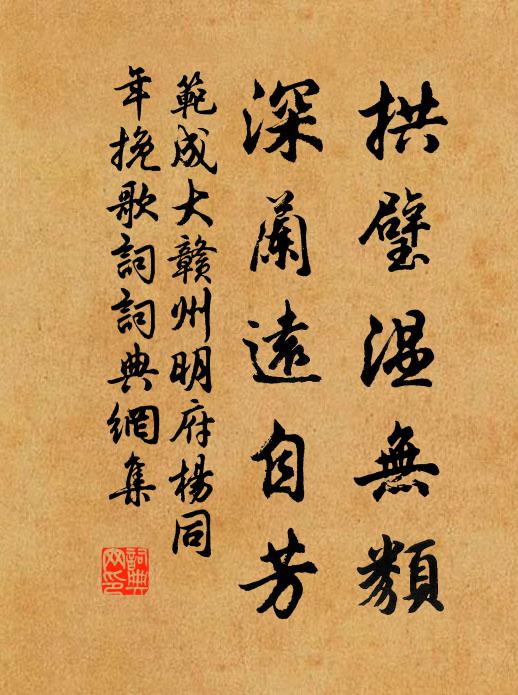 拱璧温無類
深蘭遠自芳
範成大贛州明府楊同
年挽歌詞詞典網集
詞典
网印